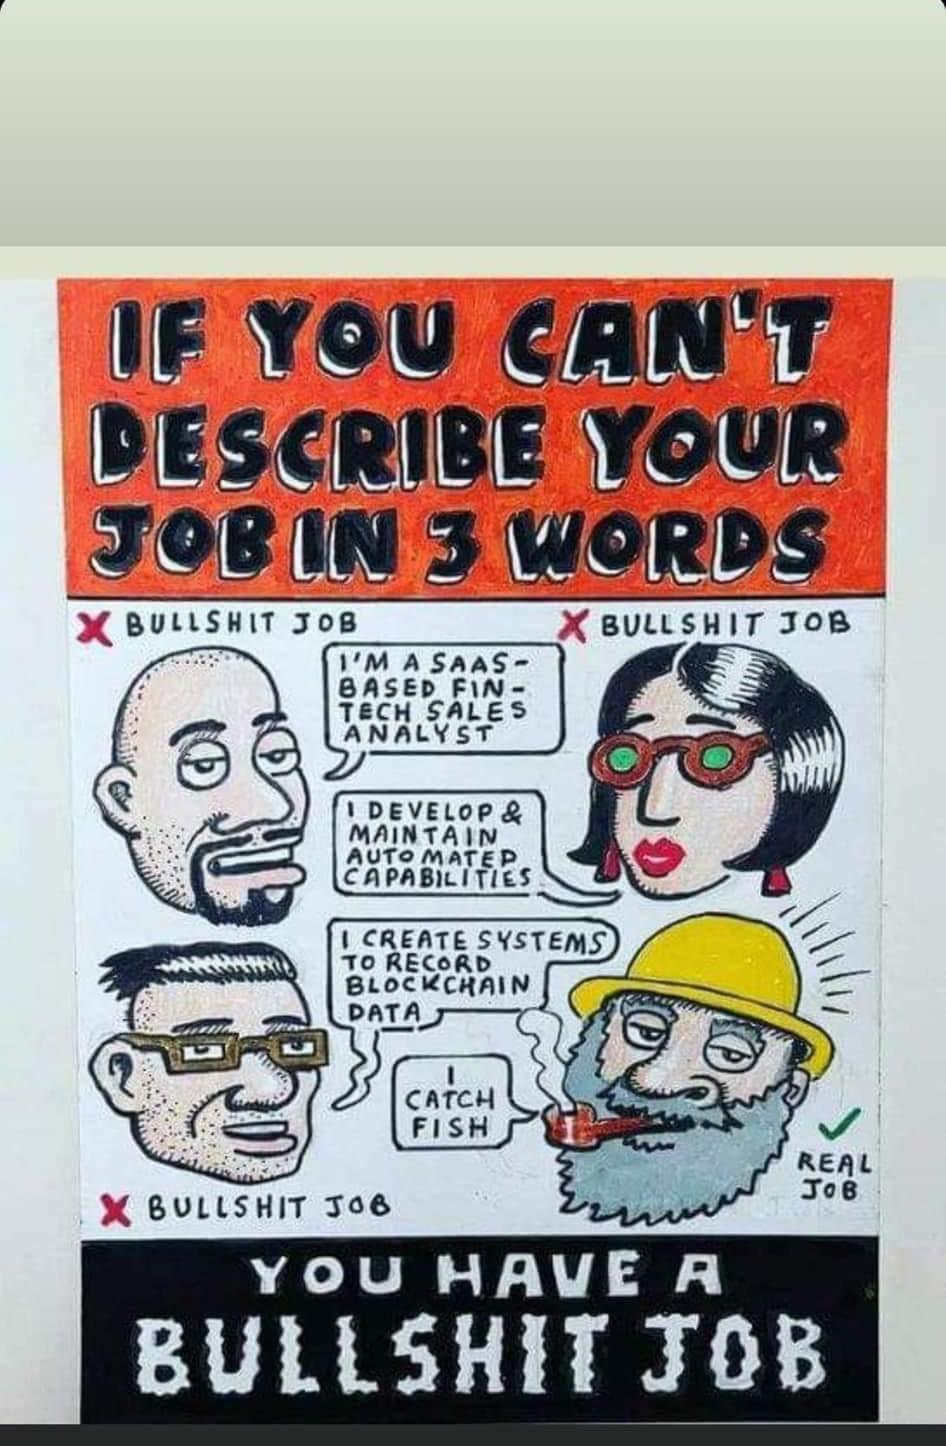 IF YOU CAN'T
DESCRIBE YOUR
JOB IN 3 WORDS
X BULLSHIT JOB
X BULLSHIT JOB
I'M A SAAS-
BASED FIN-
TECH SALES
ANALYST
I DEVELOP &
MAINTAIN
AUTOMATED
CAPABILITIES
I CREATE SYSTEMS
TO RECORD
BLOCKCHAIN
DATA
I
CATCH
FISH
✓
REAL
JOB
X BULLSHIT JOB
YOU HAVE A
BULLSHIT JOB